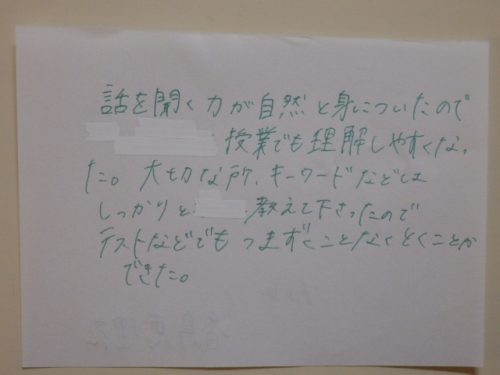 話を聞く力が自然と身についたので
授業でも理解しやすくなっ
た。大切な所、キーワードなどは
しっかりと 教えて下さったので
テストなどでもつまずくことなくとくことが
できた。